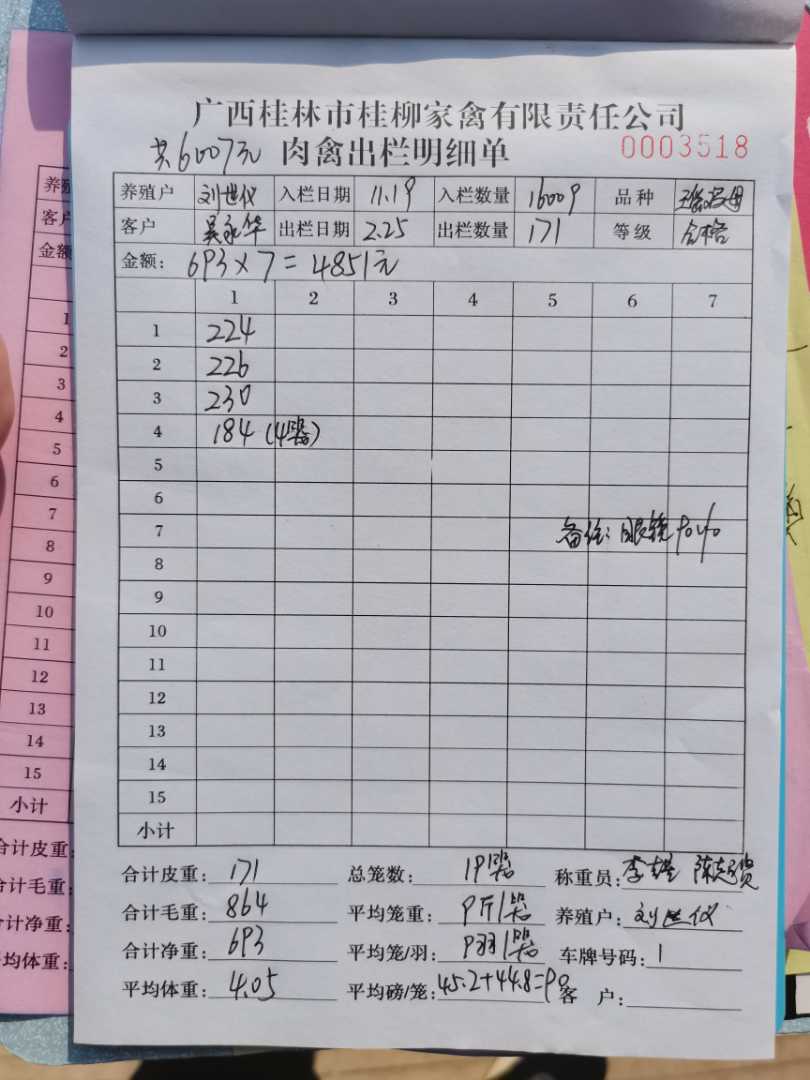 广西桂林市桂柳家禽有限责任公司
共6007元 肉禽出栏明细单 0003518
养殖户 刘世仪 入栏日期 11.19 入栏数量 16009 品种
客户 吴永华 出栏日期 2.25 出栏数量 171 等级 合格
金额: 693×7=4851元
1 2 3 4 5 6 7
1 224
2 226
3 230
4 184 (4笼)
5
6
7 备注: 眼镜
8
9
10
11
12
13
14
15
小计
合计皮重: 171 总笼数: 19笼 称重员:
合计毛重: 864 平均笼重: 9斤/笼 养殖户: 刘世仪
合计净重: 693 平均笼/羽: 9羽/笼 车牌号码: 1
平均体重: 4.05 平均磅/笼: 45.2+44.8=90 客 户:
养殖
客户
金额
1
2
3
4
5
6
7
8
9
10
11
12
13
14
15
小计
合计皮重:
合计毛重:
合计净重:
平均体重: